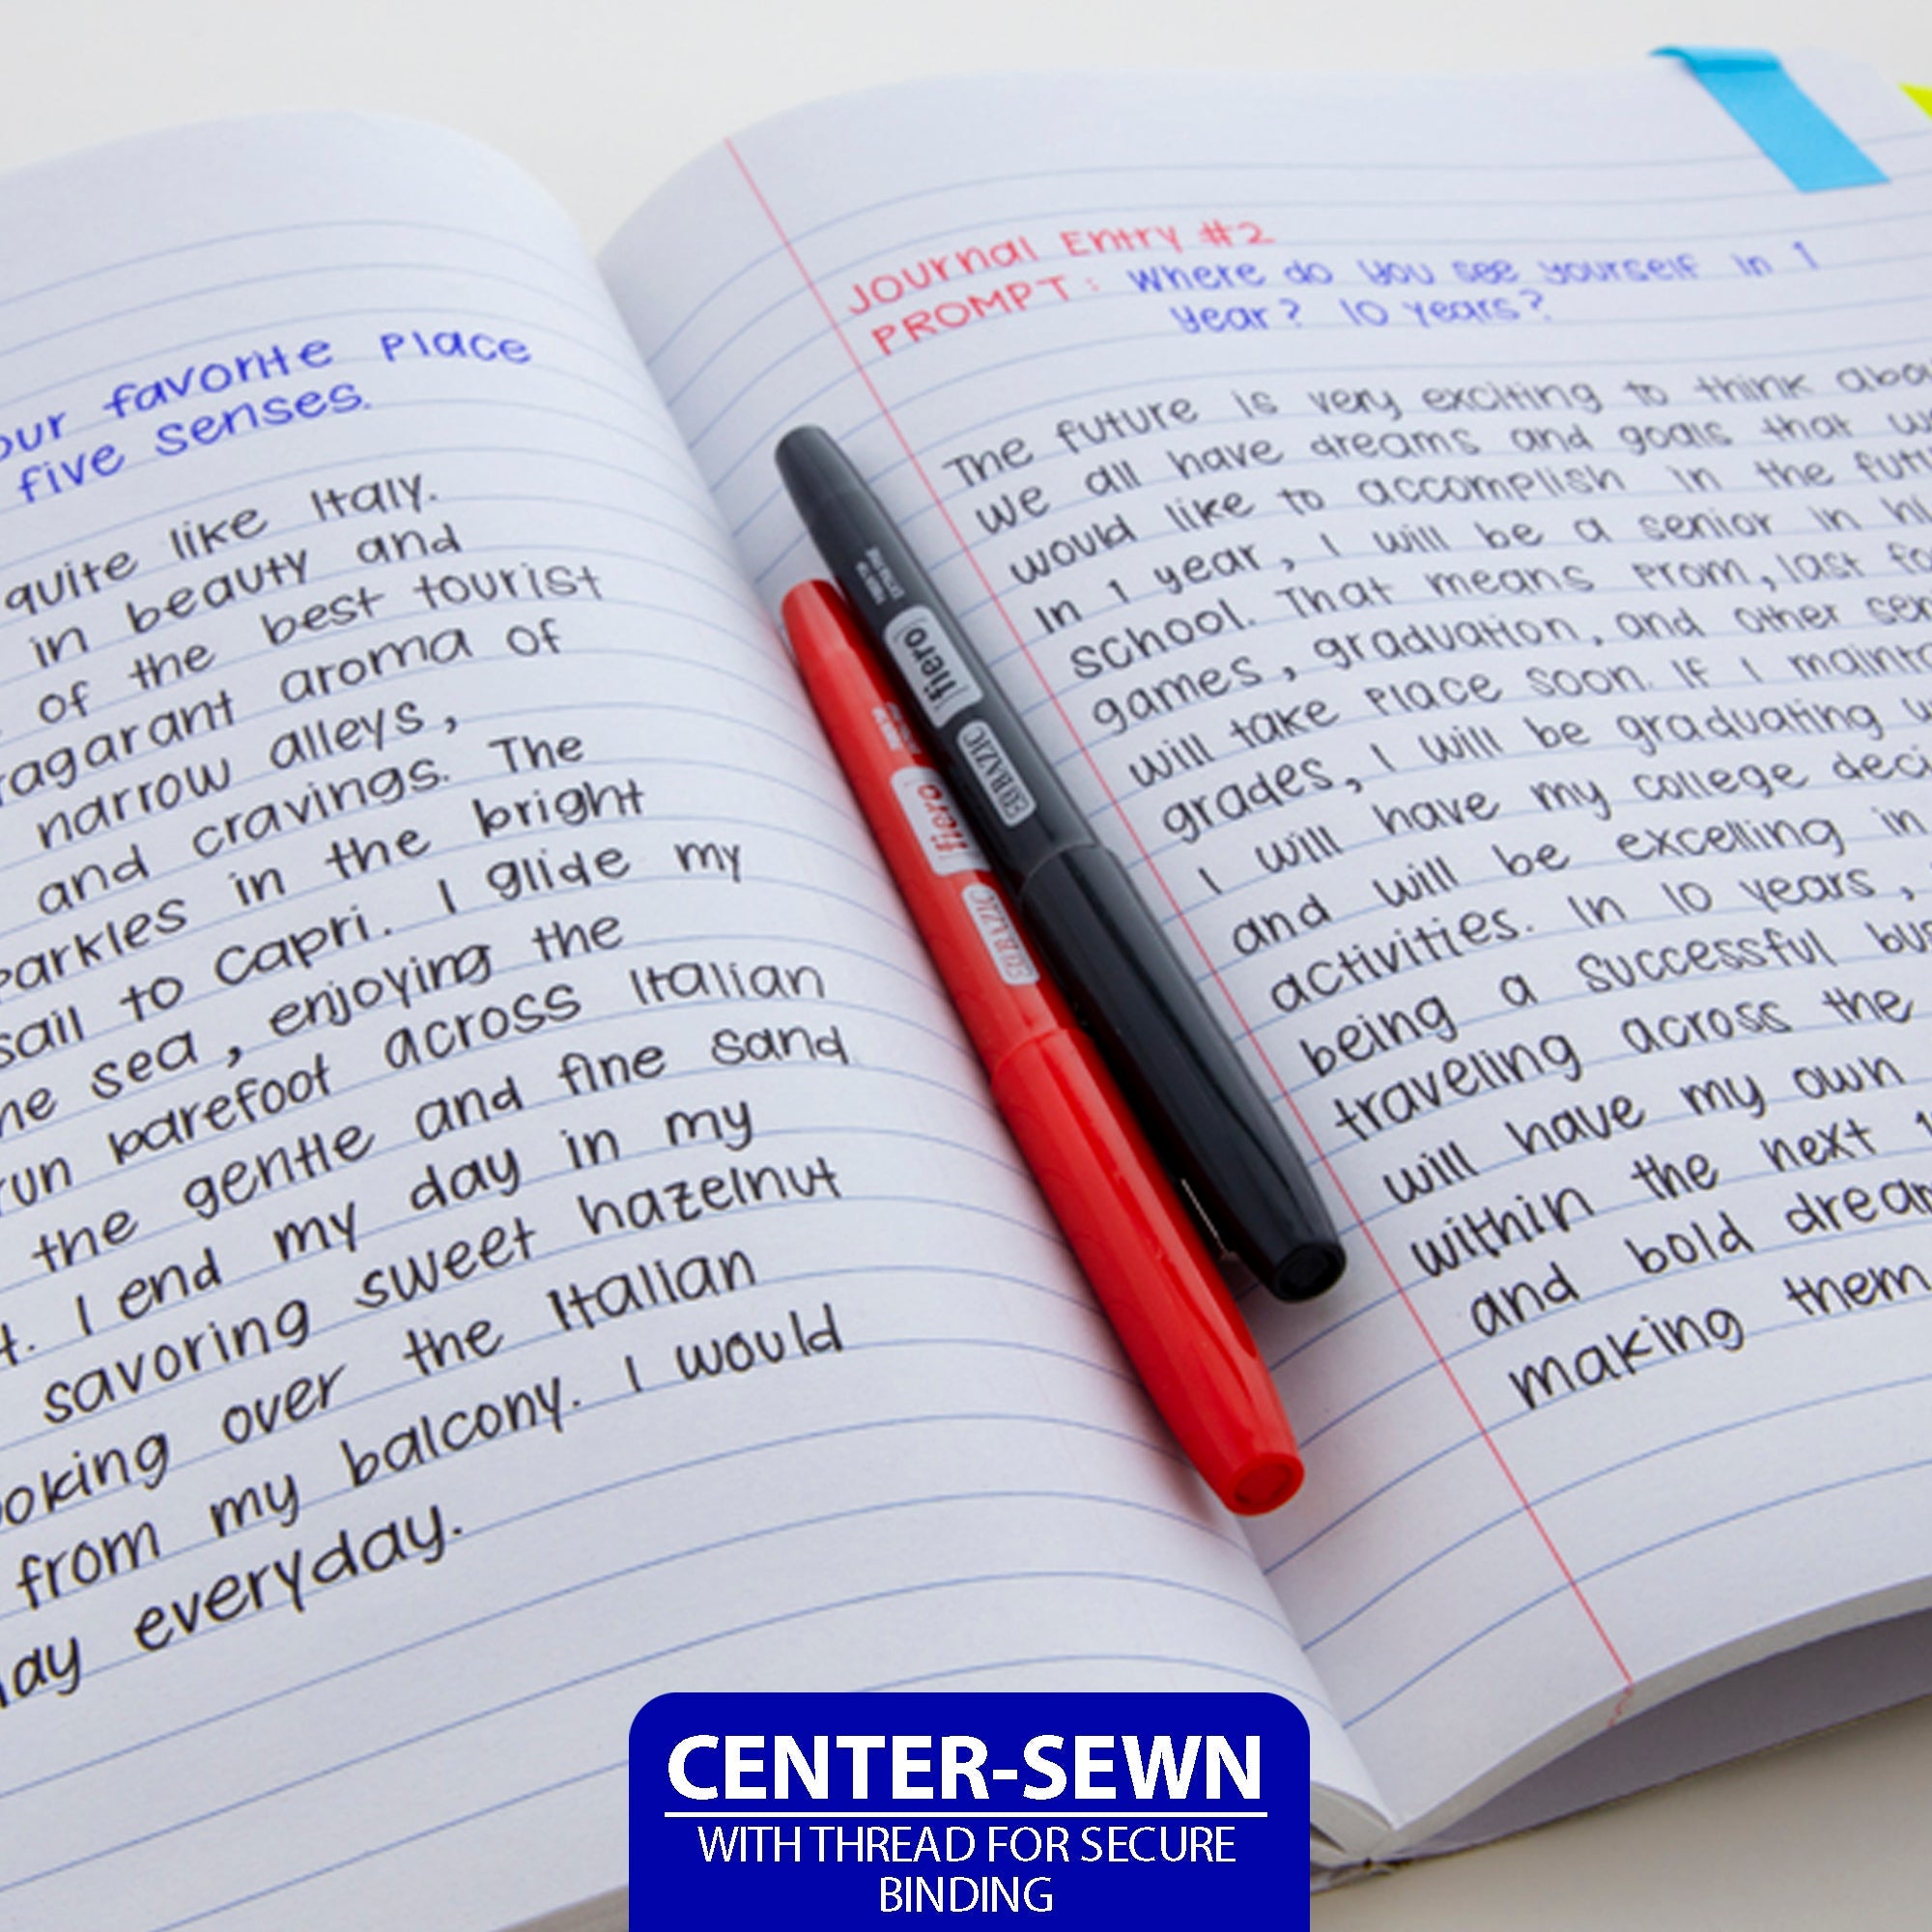 our favorite place
five senses.
quite like Italy.
in beauty and
of the best tourist
ragarant aroma of
narrow alleys,
and cravings. The
parkles in the bright
sail to Capri. I glide my
he sea, enjoying the
run barefoot across Italian
the gentle and fine sand
t. I end my day in my
savoring sweet hazelnut
ooking over the Italian
from my balcony. I would
lay everyday.
Journal Entry #2
PROMPT: Where do you see yourself in 1
year? 10 years?
The future is very exciting to think abo
We all have dreams and goals that w
would like to accomplish in the futu
In 1 year, I will be a senior in hi
school. That means prom, last fo
games, graduation, and other sen
will take place soon. If I mainta
grades, I will be graduating w
I will have my college deci
and will be excelling in
activities. In 10 years,
being a successful bus
traveling across the
will have my own
within the next 1
and bold dream
making them
fiero
BAZIC
fiero
BAZIC
CENTER-SEWN
WITH THREAD FOR SECURE
BINDING